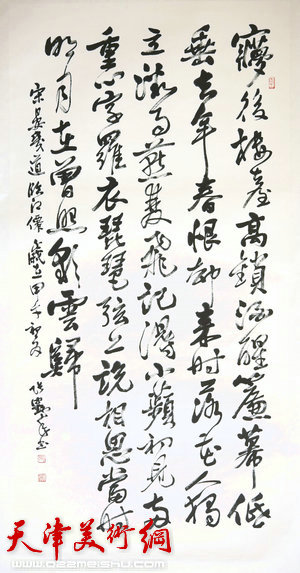 夢後樓臺高鎖酒醒簾幕低
垂去年春恨却來时落花人獨
立微雨燕雙飛記得小蘋初見兩
重心字羅衣琵琶弦上説相思當时
明月在曾照彩雲歸
宋晏幾道臨江僊歲在甲午初夏
天津美術網
www.022meishu.com